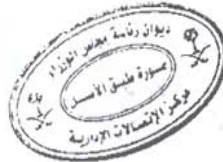 ديوان رئاسة مجلس الوزراء
صورة طبق الأصل
مركز الإتصالات الإدارية